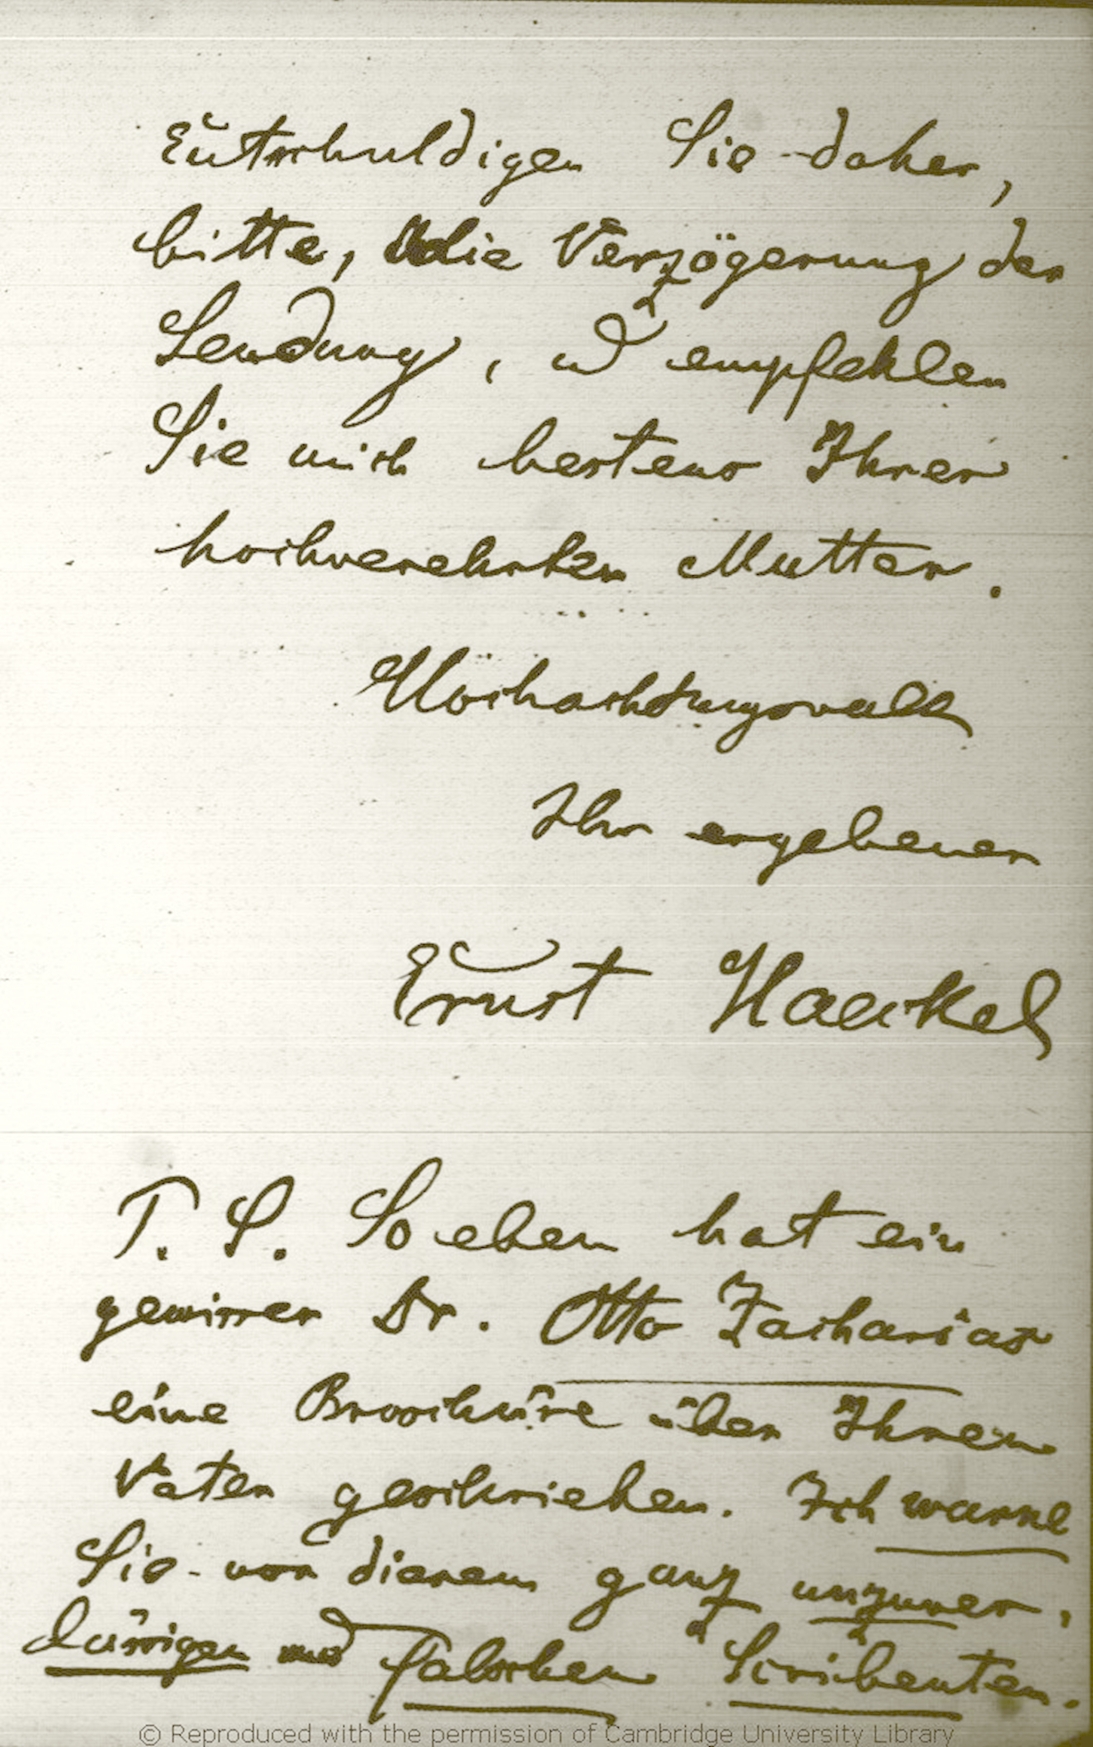 Entschuldigen Sie daher,
bitte, die Verzögerung der
Sendung, u empfehlen
Sie mich bestens Ihrer
hochverehrten Mutter.
Hochachtungsvoll
Ihr ergebener
Ernst Haeckel
P. S. So eben hat ein
gewisser Dr. Otto Zacharias
eine Broschüre über Ihren
Vater geschrieben. Ich warne
Sie vor diesem ganz unzuver-
lässigen und falschen Scribenten.
© Reproduced with the permission of Cambridge University Library